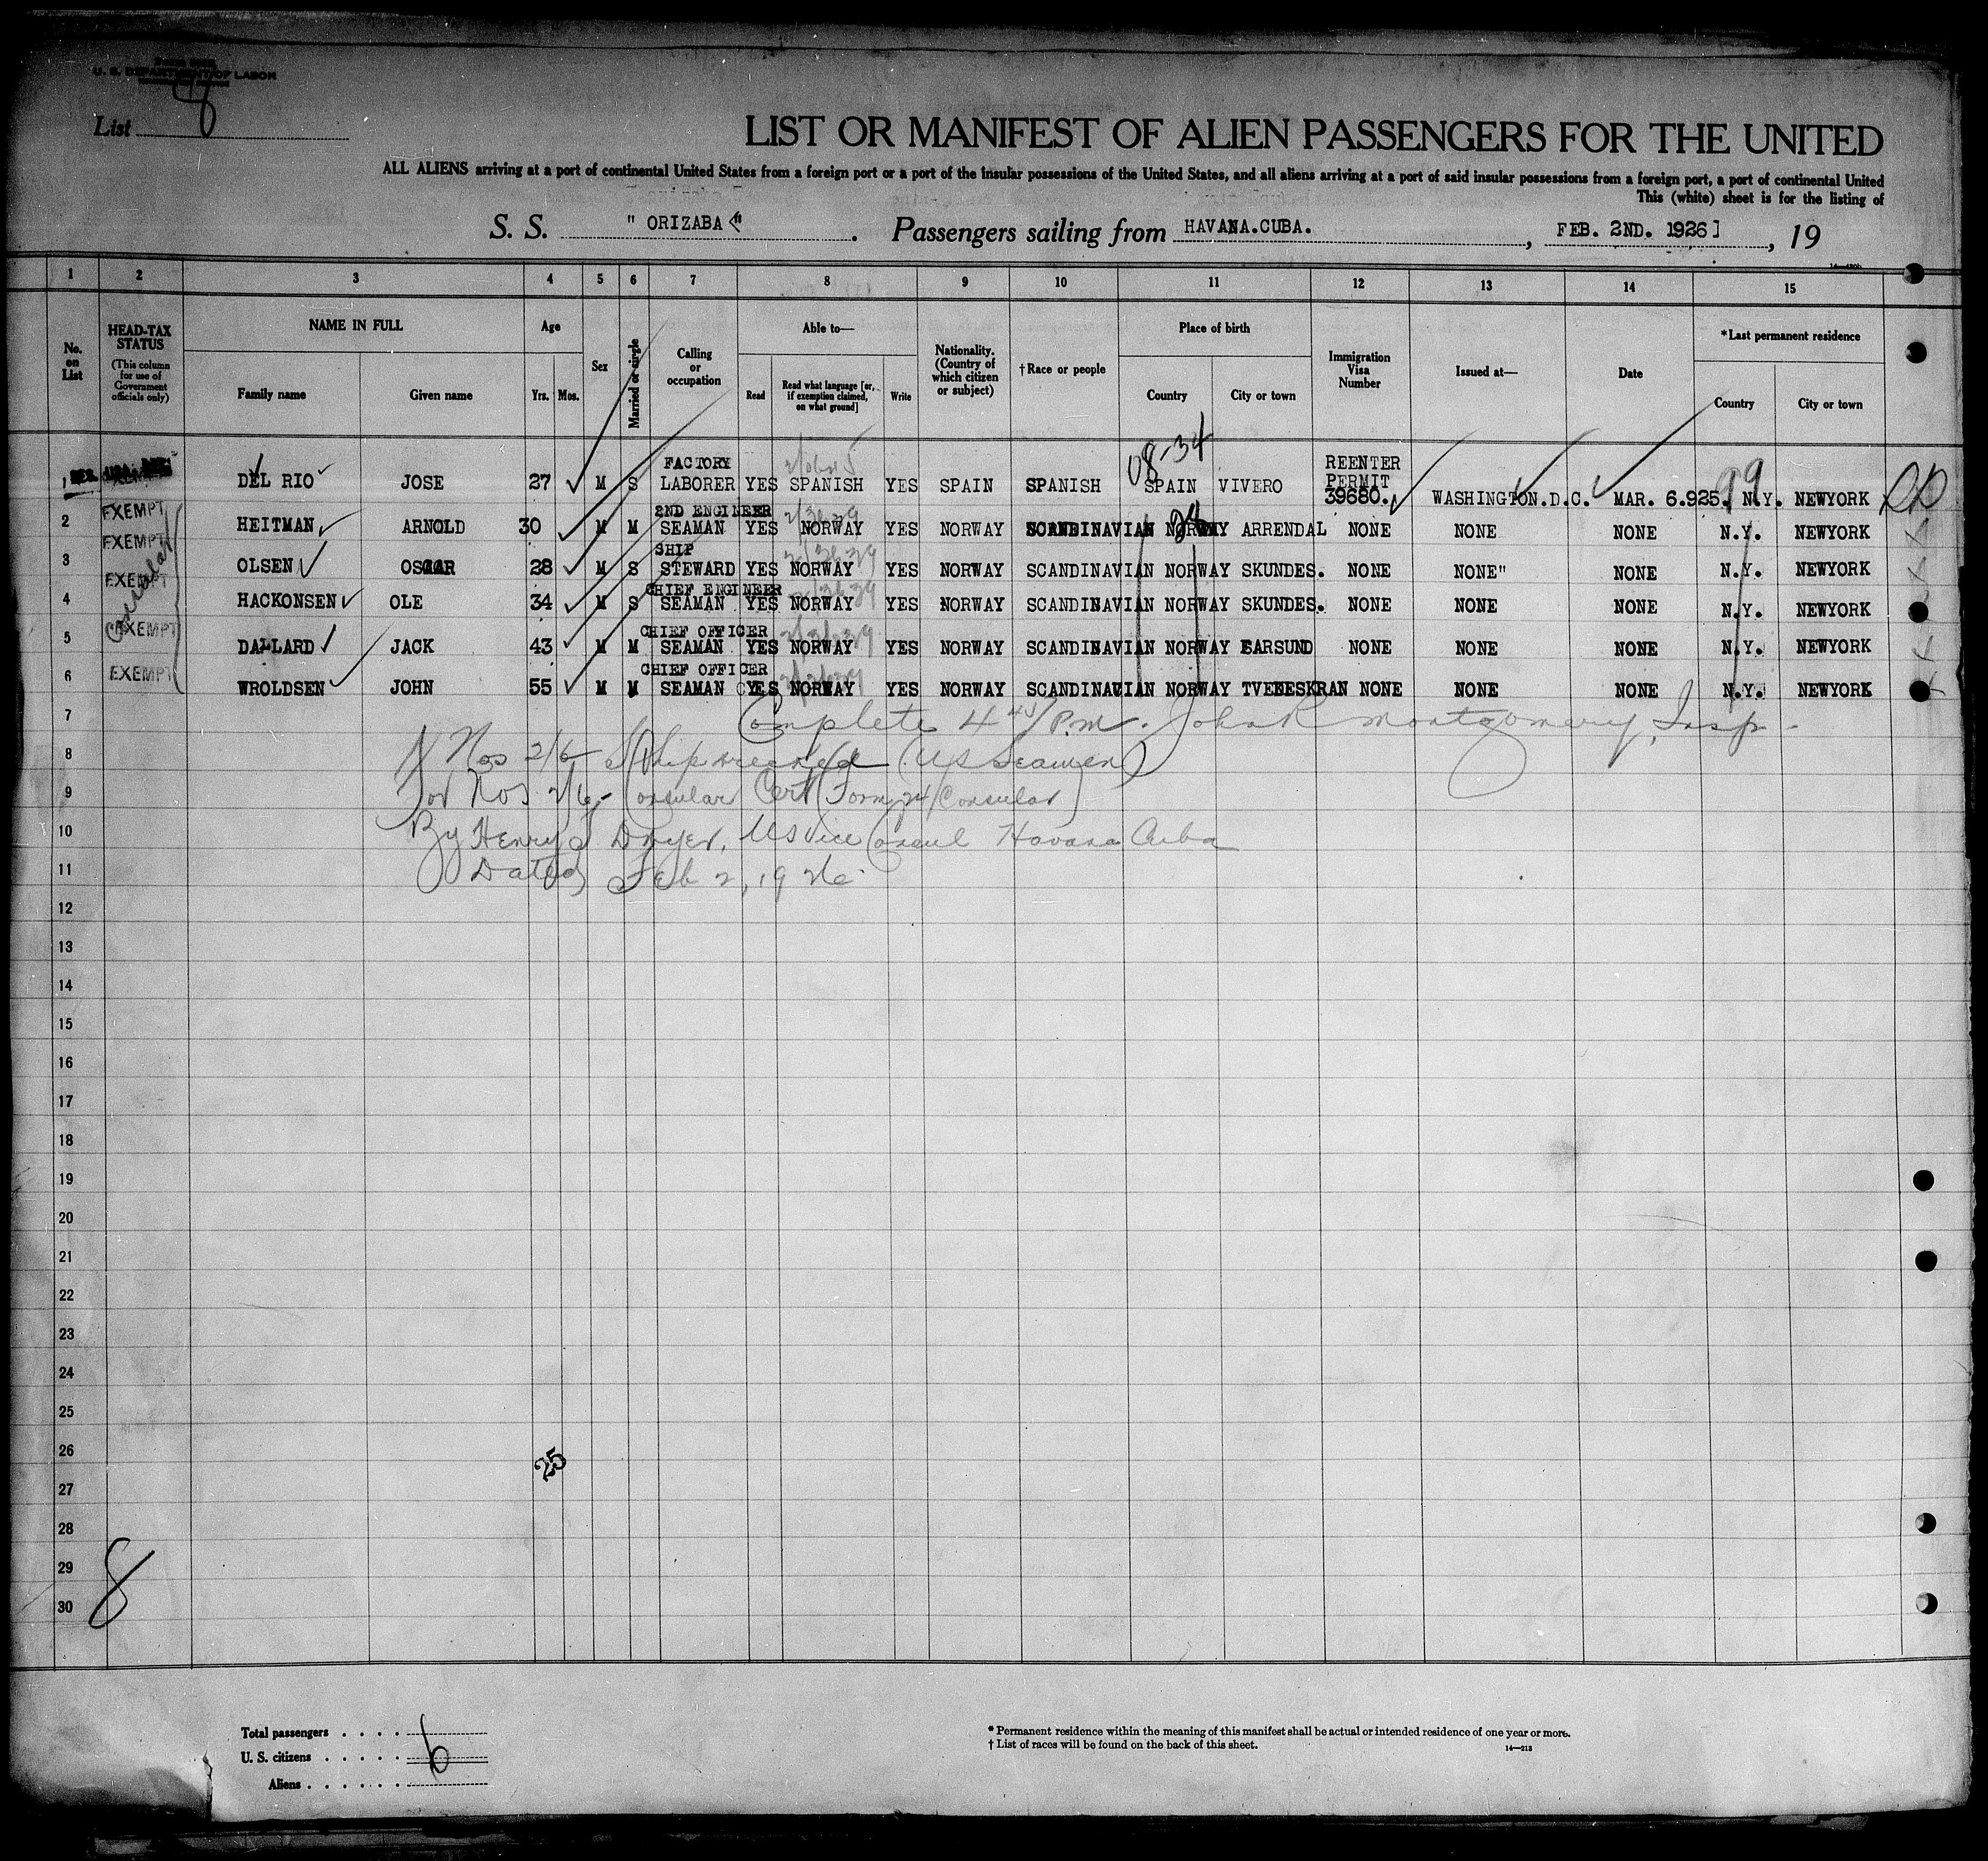 U. S. DEPARTMENT OF LABOR
List 8
LIST OR MANIFEST OF ALIEN PASSENGERS FOR THE UNITED
ALL ALIENS arriving at a port of continental United States from a foreign port or a port of the insular possessions of the United States, and all aliens arriving at a port of said insular possessions from a foreign port, a port of continental United
This (white) sheet is for the listing of
S. S. " ORIZABA " . Passengers sailing from HAVANA.CUBA. , FEB. 2ND. 1926] , 19
1 2 3 4 5 6 7 8 9 10 11 12 13 14 15
No. on List
HEAD-TAX STATUS
(This column for use of Government officials only)
NAME IN FULL
Family name Given name
Age
Yrs. Mos.
Sex
Married or single
Calling or occupation
Able to—
Read Read what language [or, if exemption claimed, on what ground] Write
Nationality. (Country of which citizen or subject)
†Race or people
Place of birth
Country City or town
Immigration Visa Number
Issued at—
Date
*Last permanent residence
Country City or town
08-34
99
1 DEL RIO JOSE 27 M S FACTORY LABORER YES SPANISH YES SPAIN SPANISH SPAIN VIVERO REENTER PERMIT 39680. WASHINGTON.D.C. MAR. 6.925. N.Y. NEWYORK
2 EXEMPT HEITMAN ARNOLD 30 M M 2ND ENGINEER SEAMAN YES NORWAY YES NORWAY SCANDINAVIAN NORWAY ARRENDAL NONE NONE NONE N.Y. NEWYORK
3 EXEMPT OLSEN OSCAR 28 M S SHIP STEWARD YES NORWAY YES NORWAY SCANDINAVIAN NORWAY SKUNDES. NONE NONE" NONE N.Y. NEWYORK
4 EXEMPT HACKONSEN OLE 34 M S CHIEF ENGINEER SEAMAN YES NORWAY YES NORWAY SCANDINAVIAN NORWAY SKUNDES. NONE NONE NONE N.Y. NEWYORK
5 EXEMPT DALLARD JACK 43 M M CHIEF OFFICER SEAMAN YES NORWAY YES NORWAY SCANDINAVIAN NORWAY FARSUND NONE NONE NONE N.Y. NEWYORK
6 EXEMPT WROLDSEN JOHN 55 M M CHIEF OFFICER SEAMAN YES NORWAY YES NORWAY SCANDINAVIAN NORWAY TVEDESKRAN NONE NONE NONE N.Y. NEWYORK
Consular
7 Complete 4 45/ P.m. John R Montgomery, Insp.
8 Nos 2/6 Shipwrecked (US Seamen)
9 for Nos 2/6 - Consular Cert (Form 24/Consular)
10 By Henry Dwyer, US Vice Consul Havana Cuba
11 Dated Feb 2, 1926
12
13
14
15
16
17
18
19
20
21
22
23
24
25
26 25
27
28
29
30
8
Total passengers . . . .
U. S. citizens . . . . . 6
Aliens . . . . . .
* Permanent residence within the meaning of this manifest shall be actual or intended residence of one year or more.
† List of races will be found on the back of this sheet.
14—213